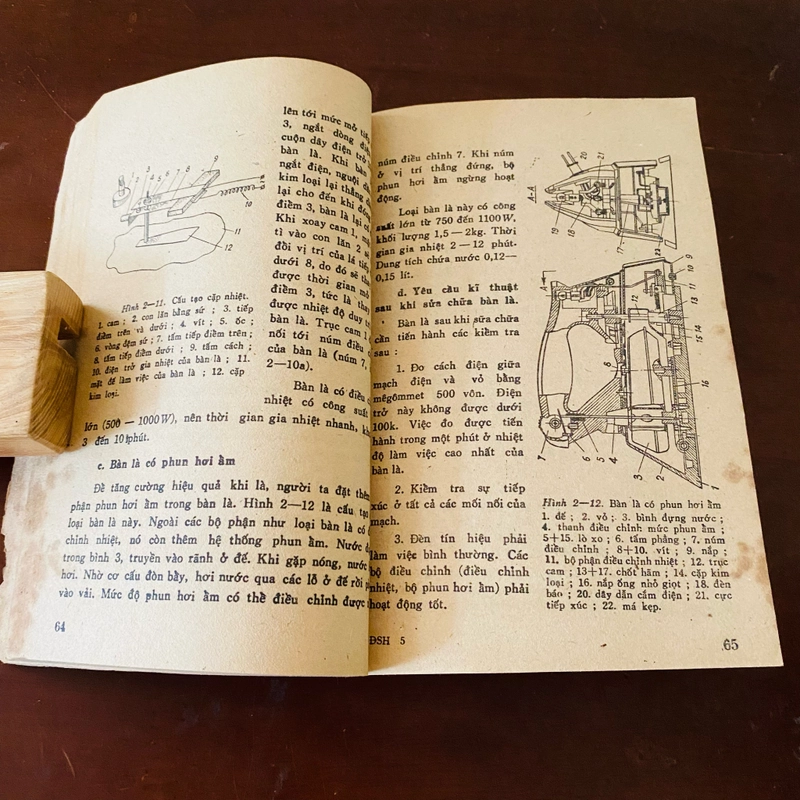 lên tới mức mở tiếp
3, ngắt dòng điện
cuộn dây điện trở
bàn là. Khi bàn
ngắt điện, nguội
kim loại lại thẳng
lại cho đến khi đóng
điểm 3, bàn là lại
Khi xoay cam 1,
tì vào con lăn 2
đổi vị trí của lá tiếp
dưới 8, do đó sẽ
được thời gian mở
điểm 3, tức là
được nhiệt độ duy trì
bàn là. Trục cam 1
nối tới núm điều
của bàn là (núm 7,
2—10a).
3 4 5 6 7 8 9
10
11
12
Hình 2—11. Cấu tạo cặp nhiệt.
1. cam ; 2. con lăn bằng sứ ; 3. tiếp
điểm trên và dưới ; 4. vít ; 5. ốc ;
6. vòng đệm sứ ; 7. tấm tiếp điểm trên ;
8. tấm tiếp điểm dưới ; 9. tấm cách ;
10. điện trở gia nhiệt của bàn là ; 11.
mặt đế làm việc của bàn là ; 12. cặp
kim loại.
Bàn là có điều
nhiệt có công suất
lớn (500 — 1000W), nên thời gian gia nhiệt nhanh,
3 đến 10 phút.
c. Bàn là có phun hơi ẩm
Để tăng cường hiệu quả khi là, người ta đặt thêm
phận phun hơi ẩm trong bàn là. Hình 2—12 là cấu tạo
loại bàn là này. Ngoài các bộ phận như loại bàn là có
chỉnh nhiệt, nó còn thêm hệ thống phun ẩm. Nước
trong bình 3, truyền vào rãnh ở đế. Khi gặp nóng, nước
hơi. Nhờ cơ cấu đòn bẩy, hơi nước qua các lỗ ở đế rồi
vào vải. Mức độ phun hơi ẩm có thể điều chỉnh được
64
núm điều chỉnh 7. Khi núm
ở vị trí thẳng đứng, bộ
phun hơi ẩm ngừng hoạt
động.
Loại bàn là này có công
suất lớn từ 750 đến 1100W,
khối lượng 1,5 — 2kg. Thời
gian gia nhiệt 2 — 12 phút.
Dung tích chứa nước 0,12—
0,15 lít.
d. Yêu cầu kĩ thuật
sau khi sửa chữa bàn là.
Bàn là sau khi sửa chữa
cần tiến hành các kiểm tra
sau :
1. Đo cách điện giữa
mạch điện và vỏ bằng
mêgômmet 500 vôn. Điện
trở này không được dưới
100k. Việc đo được tiến
hành trong một phút ở nhiệt
độ làm việc cao nhất của
bàn là.
2. Kiểm tra sự tiếp
xúc ở tất cả các mối nối của
mạch.
3. Đèn tín hiệu phải
làm việc bình thường. Các
bộ điều chỉnh (điều chỉnh
nhiệt, bộ phun hơi ẩm) phải
hoạt động tốt.
A-A
20 21
19 18 17 22
A
7 6 5 4 3 2 1
8 9 10 11 12 13 14 15 16
Hình 2—12. Bàn là có phun hơi ẩm
1. đế ; 2. vỏ ; 3. bình đựng nước ;
4. thanh điều chỉnh mức phun ẩm ;
5+15. lò xo ; 6. tấm phẳng ; 7. núm
điều chỉnh ; 8+10. vít ; 9. nắp ;
11. bộ phận điều chỉnh nhiệt ; 12. trục
cam ; 13+17. chốt hãm ; 14. cặp kim
loại ; 16. nắp ống nhỏ giọt ; 18. đèn
báo ; 20. dây dẫn cắm điện ; 21. cực
tiếp xúc ; 22. má kẹp.
ĐSH 5
65